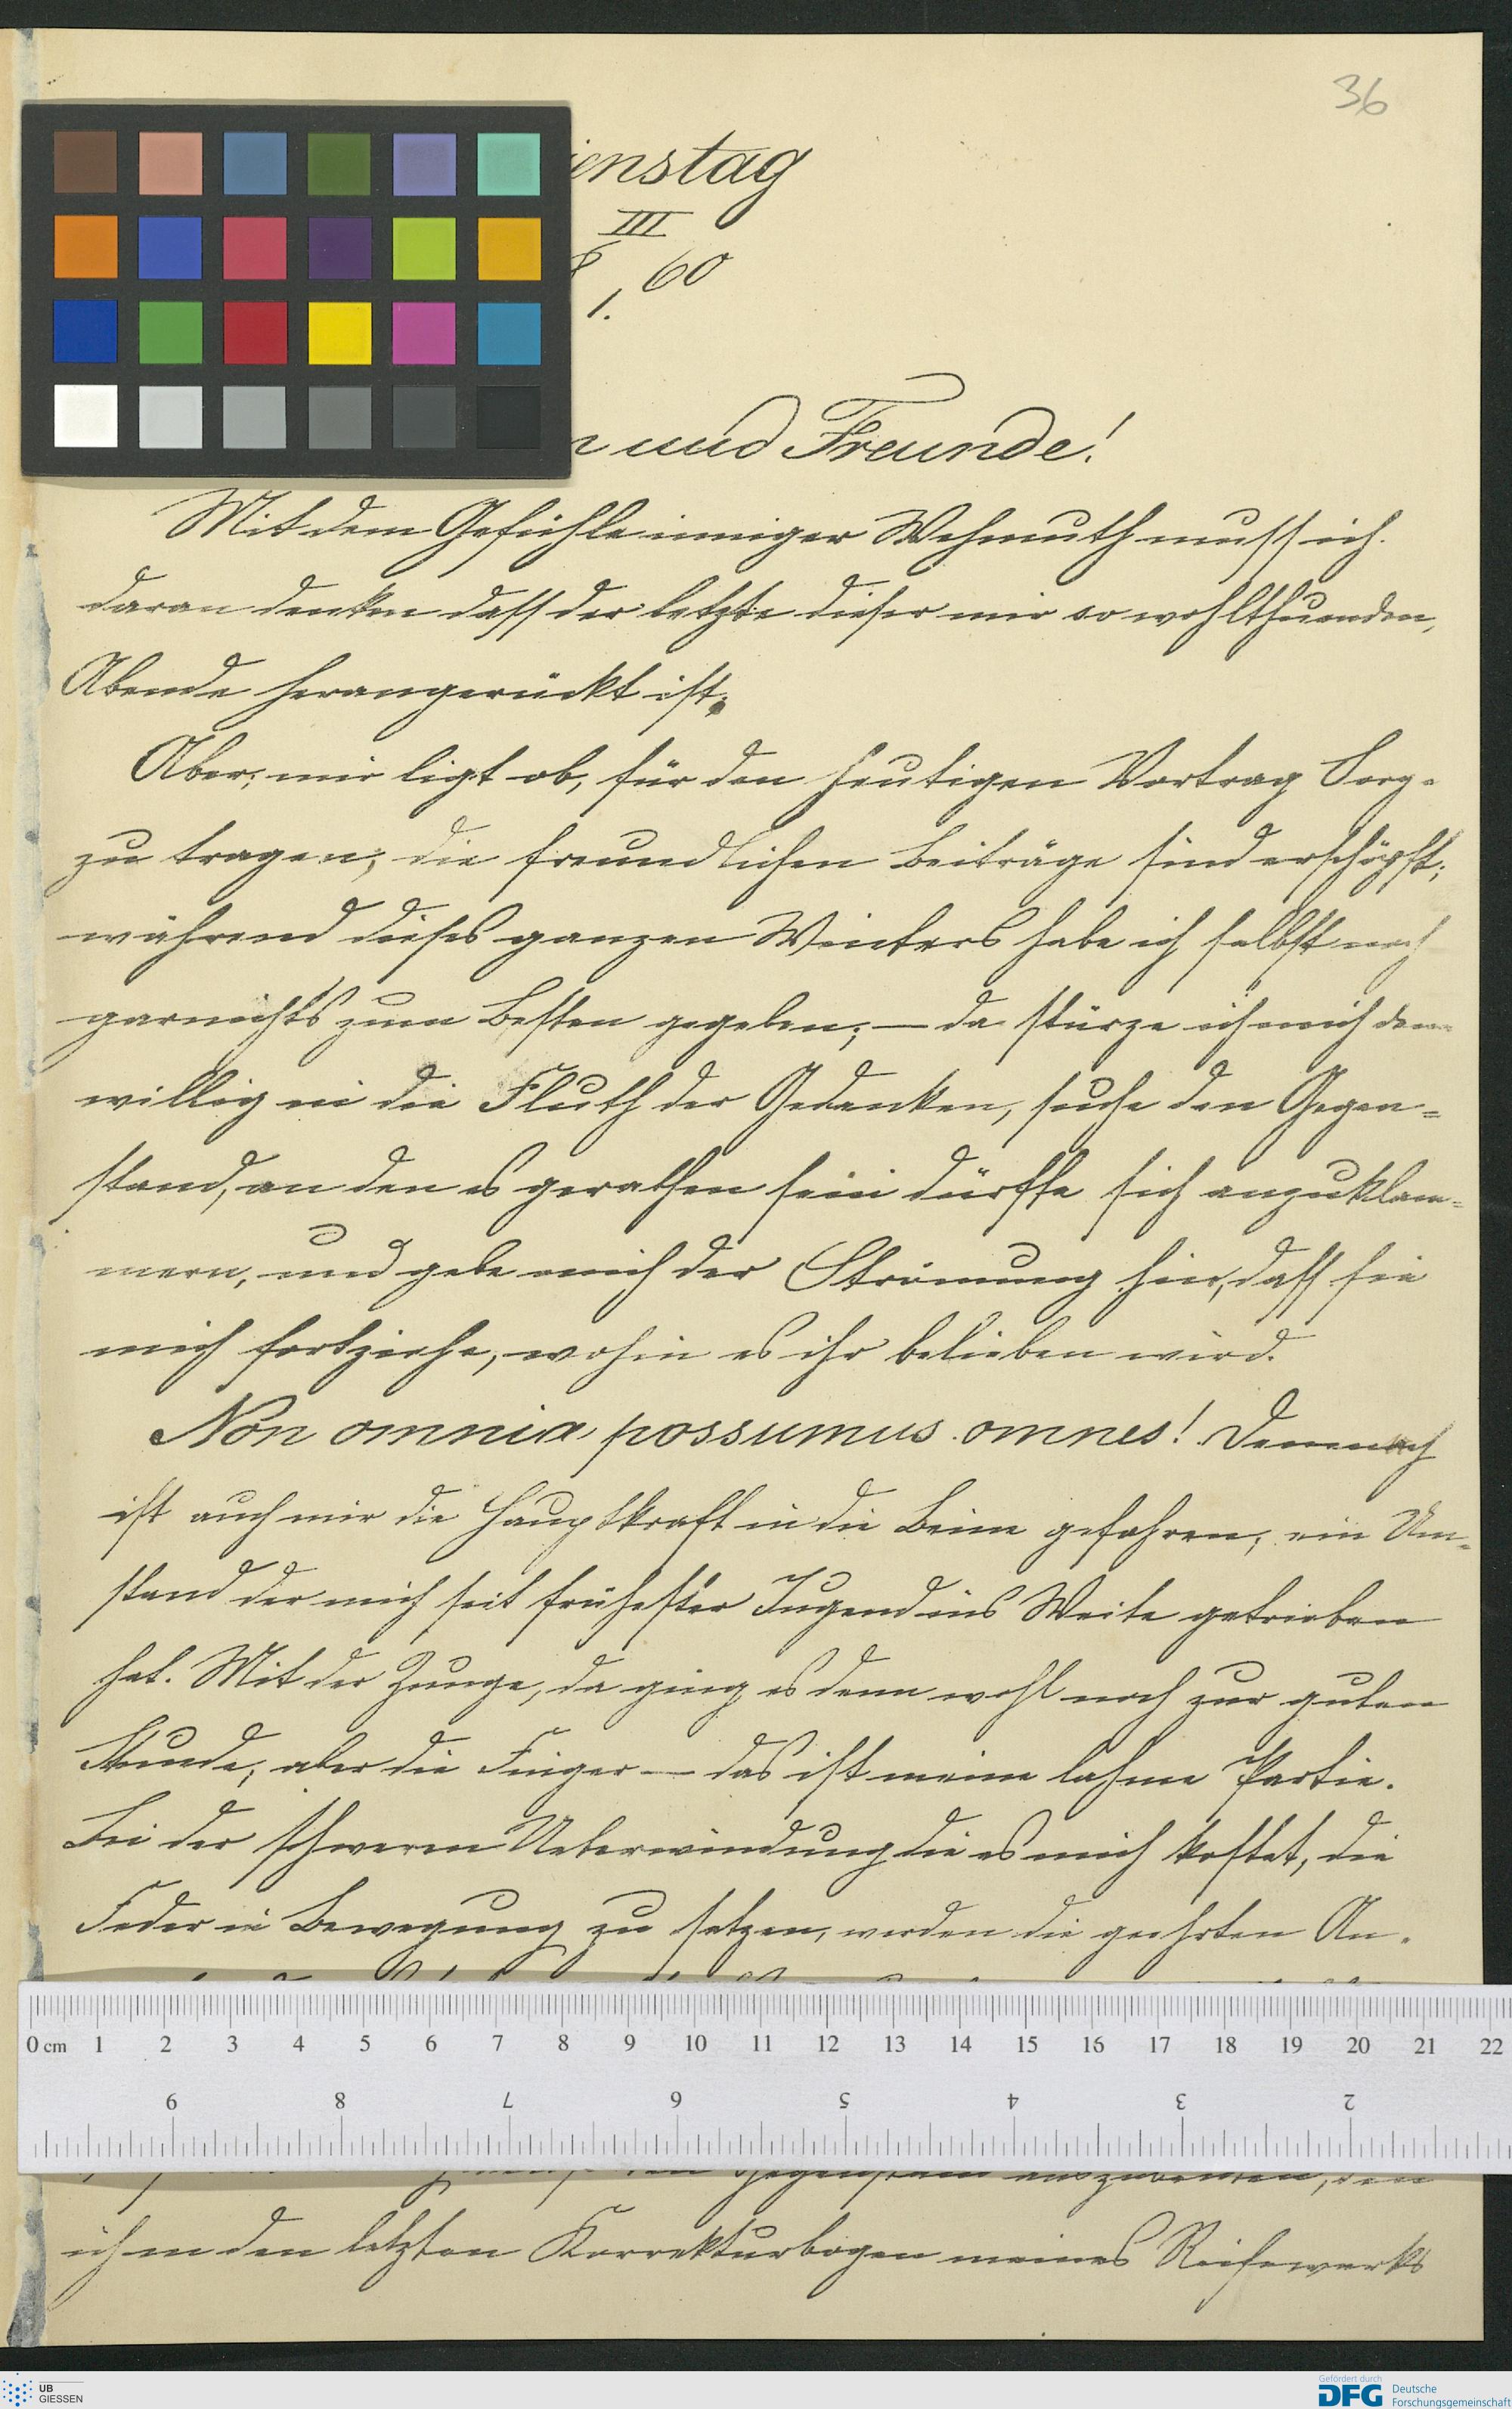 36
ienstag
III
60
1.
n und Freunde!
Mit dem Gefühle inniger Wehmuth muss ich
daran denken dass der letzte dieser mir so wohlthuenden,
Abende herangerückt ist.
Aber, mir ligt ob, für den heutigen Vortrag Sorg-
zu tragen; die freundlichen Beiträge sind erschöpft;
während dieses ganzen Winters habe ich selbst noch
garnichts zum Besten gegeben; — da stürze ich mich denn
willig in die Fluth der Gedanken, suche den Gegen=
stand, an den es gerathen sein dürfte sich anzuklam=
mern, und gebe mich der Strömung hin, dass sie
mich fortziehe, wohin es ihr belieben wird.
Non omnia possumus omnes! Demnach
ist auch mir die Hauptkraft in die Beine gefahren, ein Um=
stand der mich seit frühester Jugend ins Weite getrieben
hat. Mit der Zunge, da ging es denn wohl noch zur guten
Stunde, aber die Finger — das ist meine lahme Partie.
Bei der schweren Ueberwindung die es mich kostet, die
Feder in Bewegung zu setzen, werden die geehrten An-
0 cm 1 2 3 4 5 6 7 8 9 10 11 12 13 14 15 16 17 18 19 20 21 22
9 8 7 6 5 4 3 2
Gegenstand auszubeuten, den
ich in den letzten Korrekturbogen meines Reisewerks
UB
GIESSEN
Gefördert durch
DFG Deutsche
Forschungsgemeinschaft